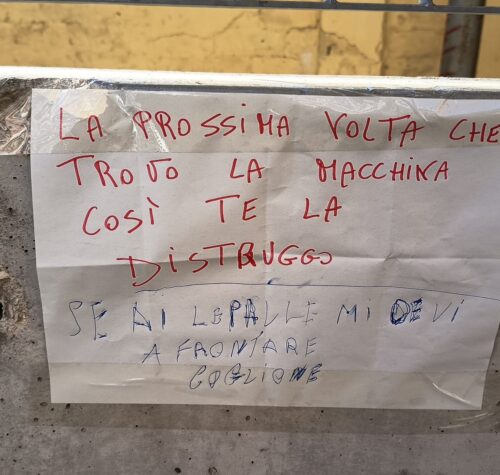 LA PROSSIMA VOLTA CHE
TROVO LA MACCHINA
COSÌ TE LA
DISTRUGGO
SE AI LE PALLE MI DEVI
A FRONTARE
COGLIONE